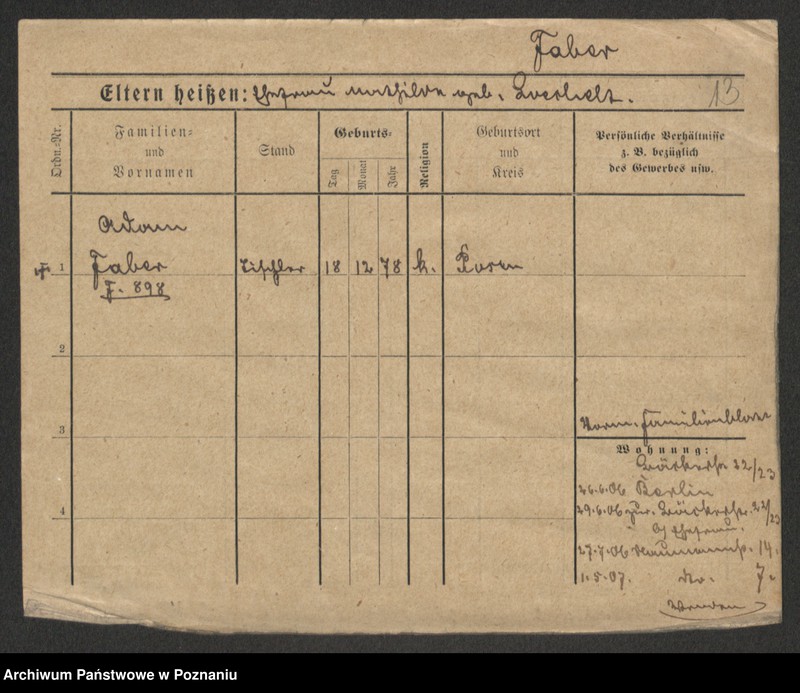 Faber
Eltern heißen: Ehefrau Mathilde geb.
13
Ordn.-Nr.
Familien-
und
Vornamen
Stand
Geburts-
Tag
Monat
Jahr
Religion
Geburtsort
und
Kreis
Persönliche Verhältnisse
z. B. bezüglich
des Gewerbes usw.
Adam
1 Faber Tischler 18 12 78 k. Posen
F. 898
2
3
4
Vorm. Familienblatt
Wohnung:
Bäckerstr. 22/23
26.6.06 Berlin
29.6.06 zur. Bäckerstr. 22/23
Ehefrau.
27.7.06 Naumannstr. 14.
1.5.07. do. 7.
Wenden
Archiwum Państwowe w Poznaniu